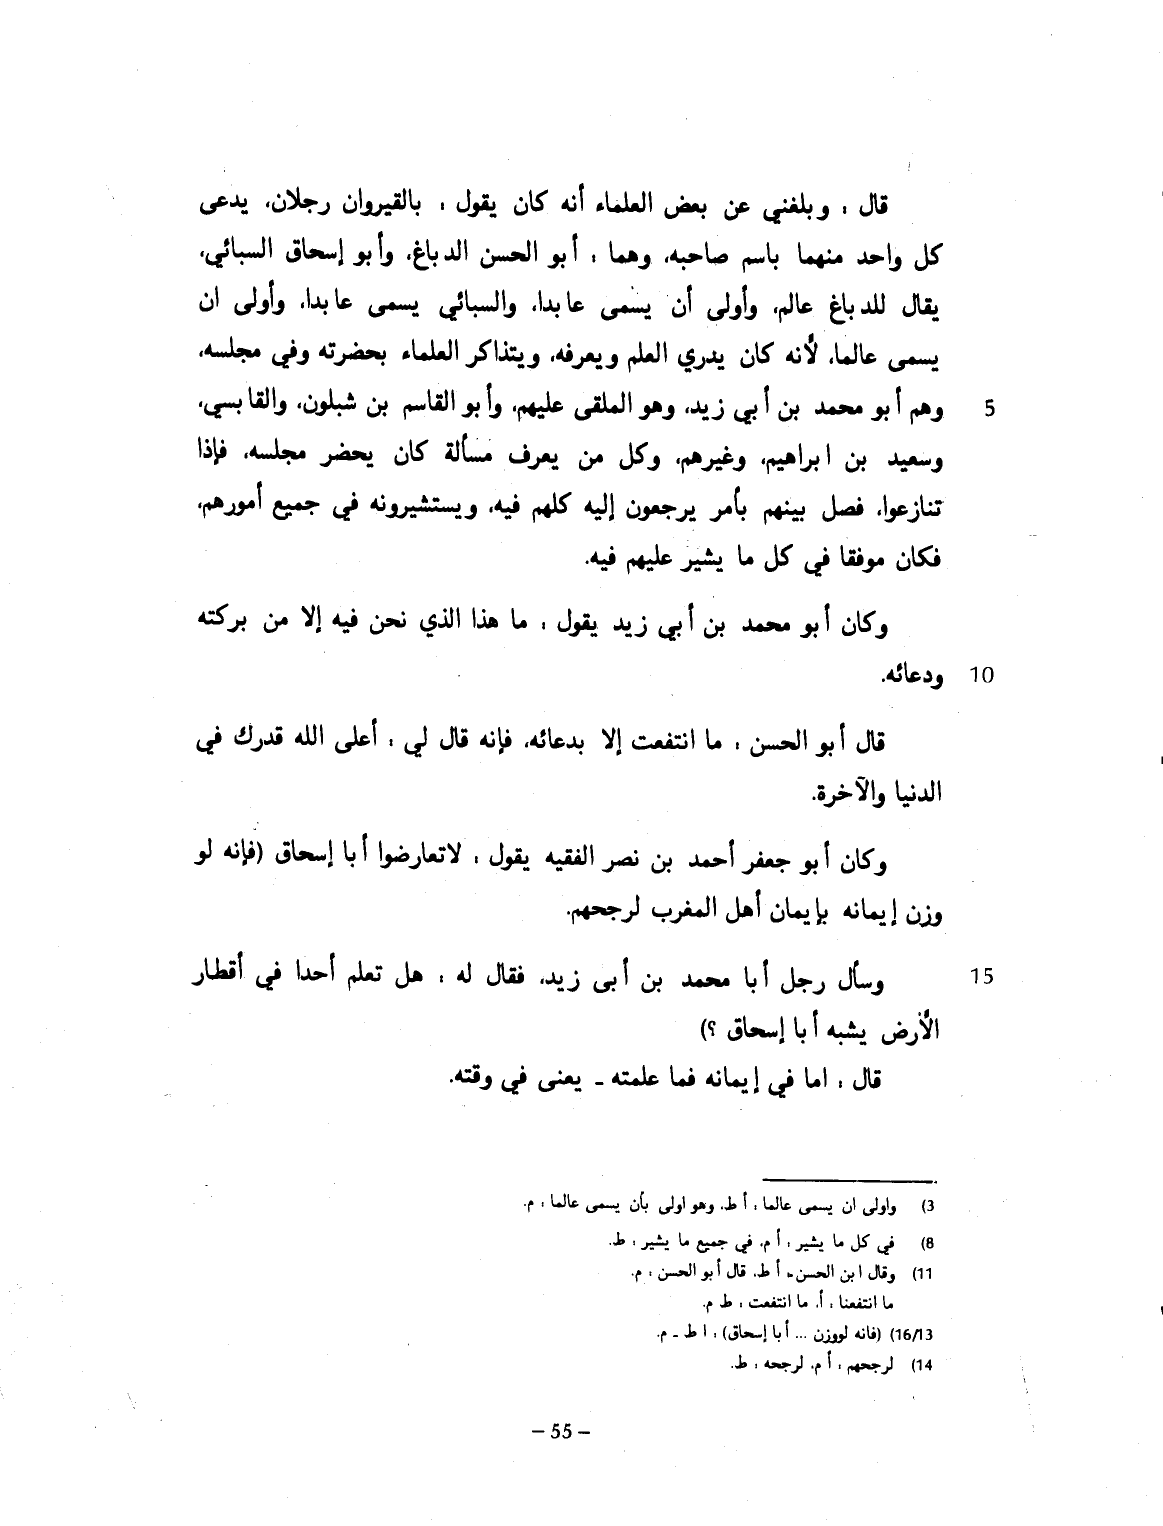 قال : وبلغني عن بعض العلماء أنه كان يقول : بالقيروان رجلان، يدعى
كل واحد منهما باسم صاحبه، وهما : أبو الحسن الدباغ، وأبو إسحاق السبائي،
يقال للدباغ عالم، وأولى أن يسمى عابدا، والسبائي يسمى عابدا، وأولى ان
يسمى عالما، لأنه كان يدري العلم ويعرفه، ويتذاكر العلماء بحضرته وفي مجلسه،
5 وهم أبو محمد بن أبي زيد، وهو الملقى عليهم، وأبو القاسم بن شبلون، والقابسي،
وسعيد بن ابراهيم، وغيرهم، وكل من يعرف مسألة كان يحضر مجلسه، فإذا
تنازعوا، فصل بينهم بأمر يرجعون إليه كلهم فيه، ويستشيرونه في جميع أمورهم،
فكان موفقا في كل ما يشير عليهم فيه.
وكان أبو محمد بن أبي زيد يقول : ما هذا الذي نحن فيه إلا من بركته
10 ودعائه.
قال أبو الحسن : ما انتفعت إلا بدعائه، فإنه قال لي : أعلى الله قدرك في
الدنيا والآخرة.
وكان أبو جعفر أحمد بن نصر الفقيه يقول : لاتعارضوا أبا إسحاق (فإنه لو
وزن إيمانه بإيمان أهل المغرب لرجحهم.
15 وسأل رجل أبا محمد بن أبى زيد، فقال له : هل تعلم أحدا في أقطار
الأرض يشبه أبا إسحاق ؟)
قال : اما في إيمانه فما علمته ـ يعنى في وقته.
3) واولى ان يسمى عالما : أ ط. وهو اولى بأن يسمى عالما : م.
8) في كل ما يشير : أ م. في جميع ما يشير : ط.
11) وقال ابن الحسن : أ ط. قال أبو الحسن : م.
ما انتفعنا : أ. ما انتفعت : ط م.
16/13) (فانه لووزن ... أبا إسحاق) : ا ط ـ م.
14) لرجحهم : أ م. لرجحه : ط.
– 55 –